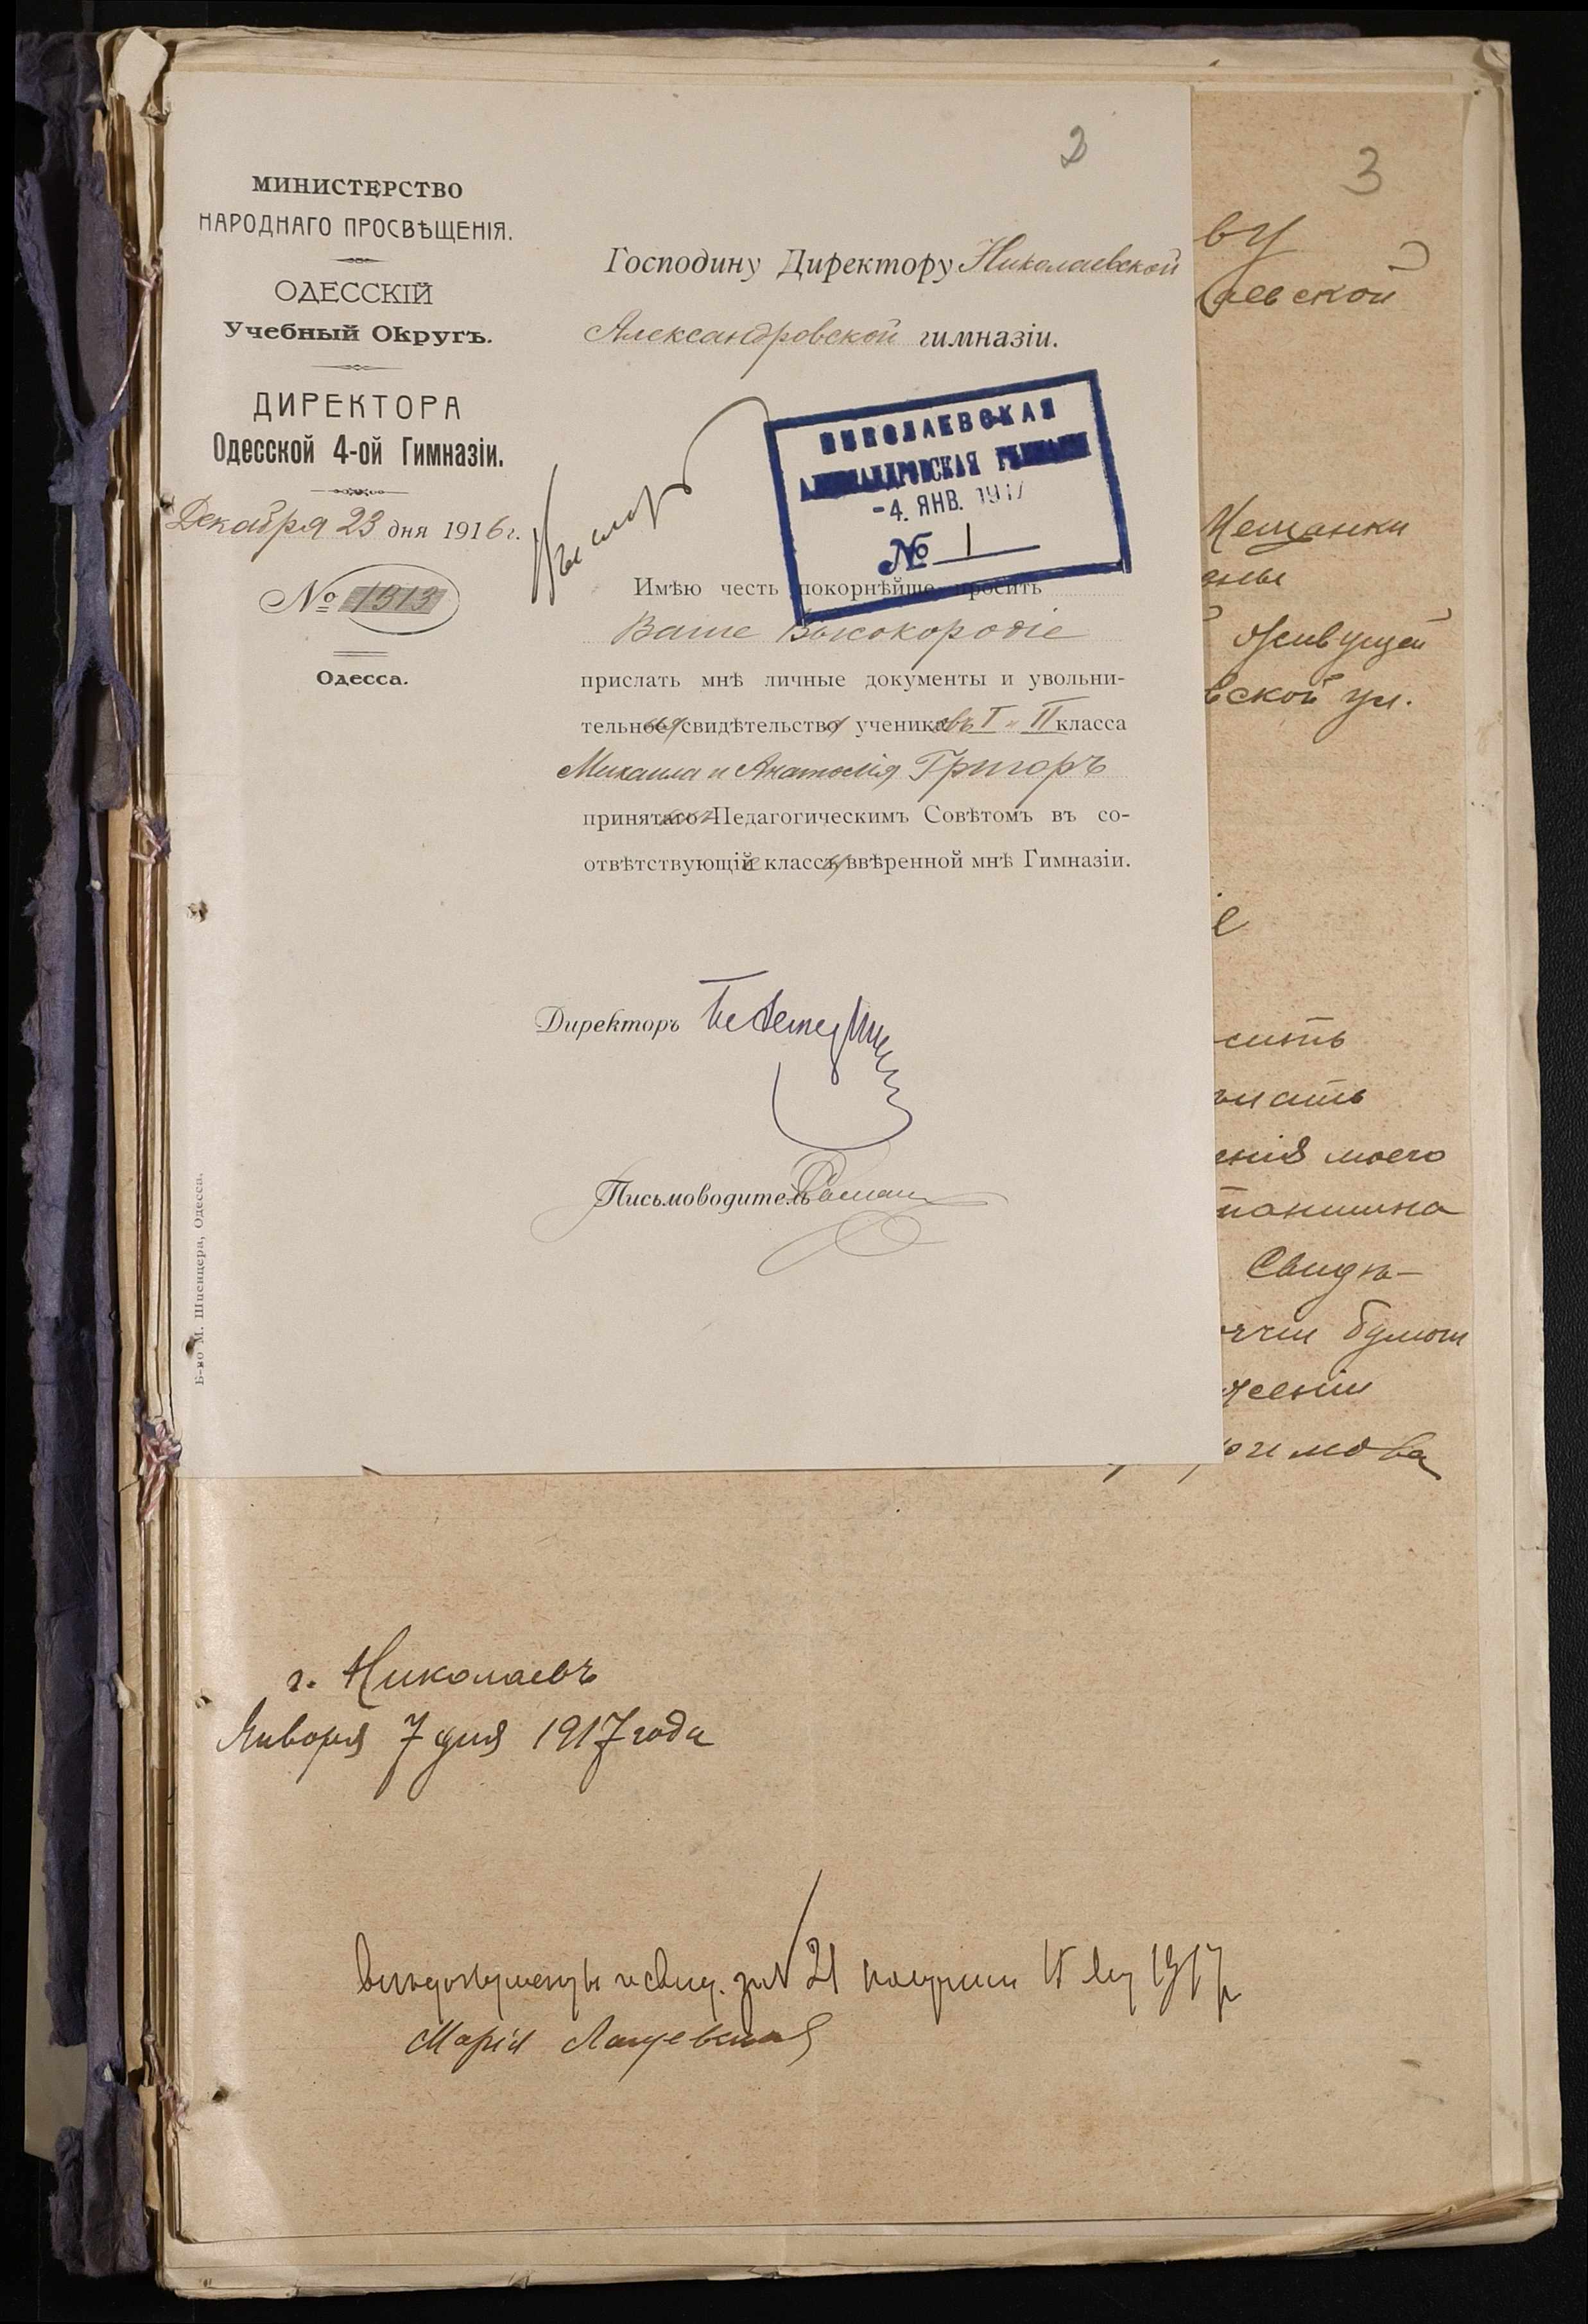 2
МИНИСТЕРСТВО
НАРОДНАГО ПРОСВѢЩЕНІЯ.
ОДЕССКІЙ
Учебный Округъ.
ДИРЕКТОРА
Одесской 4-ой Гимназіи.
Декабря 23 дня 1916 г.
№ 1513
Одесса.
Господину Директору Николаевской
Александровской гимназіи.
НИКОЛАЕВСКАЯ
АЛЕКСАНДРОВСКАЯ ГИМНАЗІЯ
-4. ЯНВ. 1917
№ 1
Имѣю честь покорнѣйше просить
Ваше Высокородіе
прислать мнѣ личные документы и увольни-
тельныя свидѣтельства учениковъ I и II класса
Михаила и Анатолія Григоръ
принятаго Педагогическимъ Совѣтомъ въ со-
отвѣтствующій классъ ввѣренной мнѣ Гимназіи.
Директоръ
Письмоводитель
Б-во М. Шпенцера, Одесса.
3
ву
аевской
Мещанки
живущей
вской ул.
е
сить
енія моего
Свидѣ-
бумаги
г. Николаевъ
Января 7 дня 1917 года
21 1917
Марія